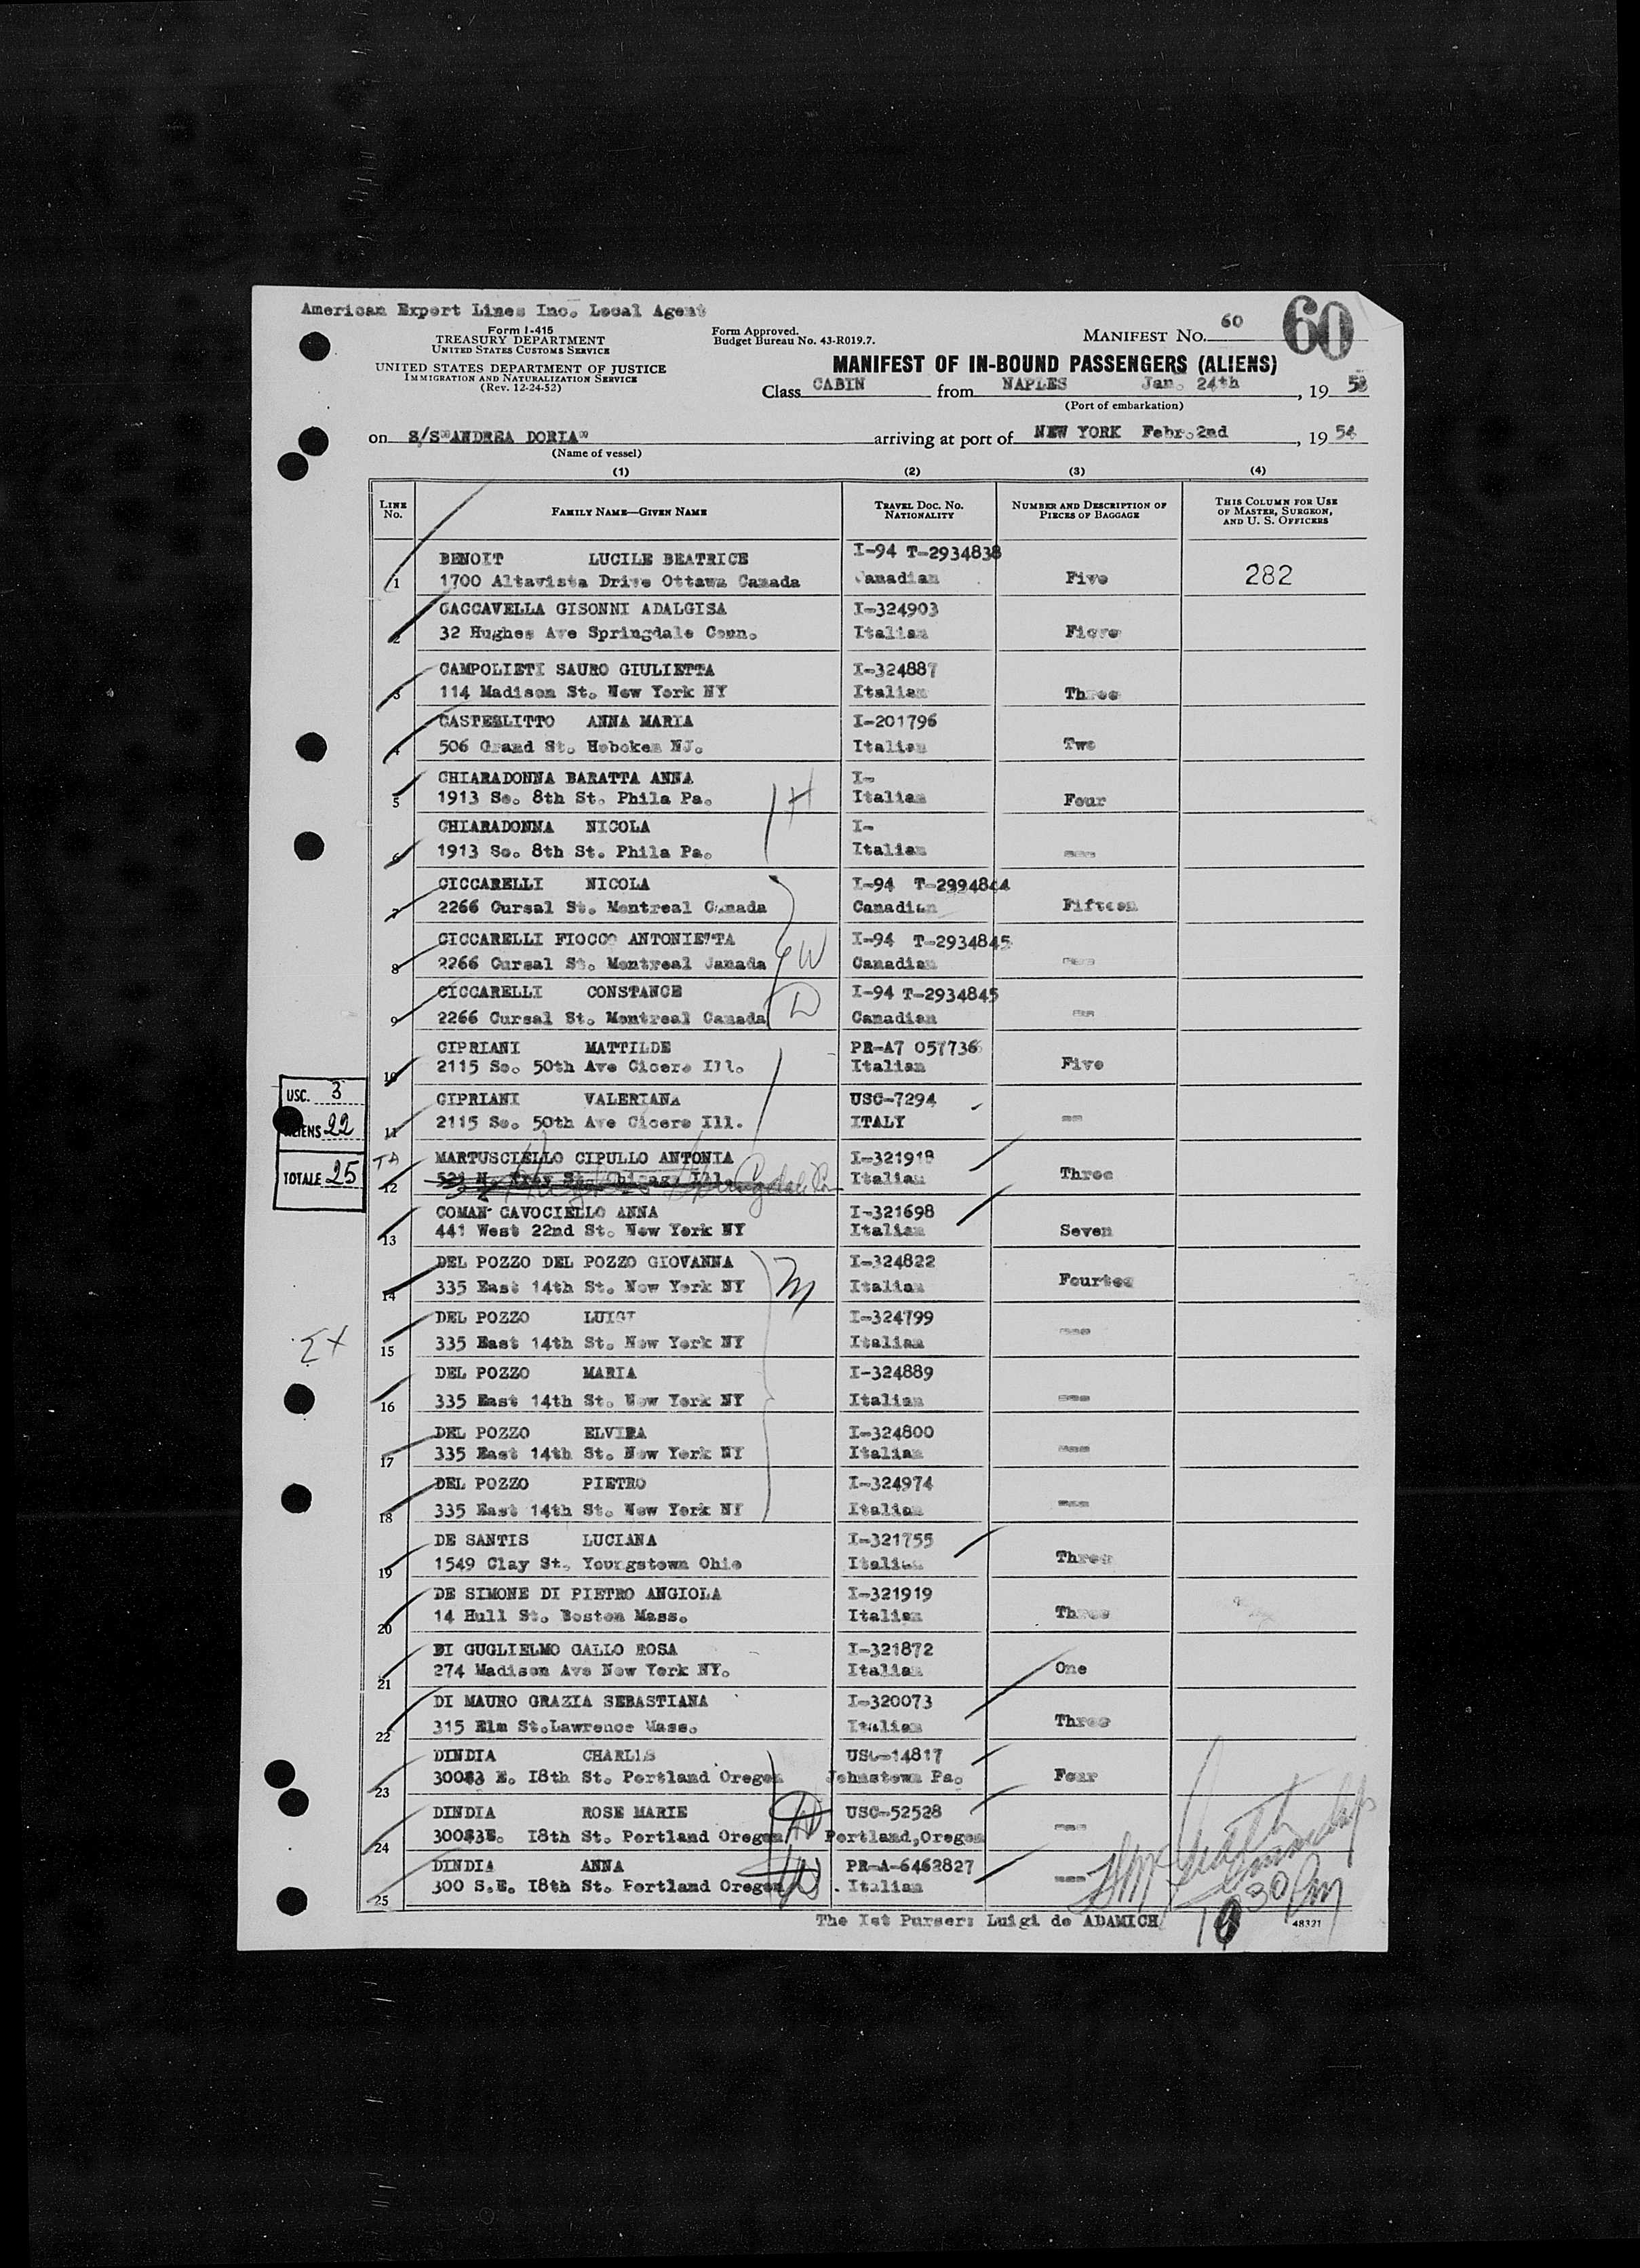 American Export Lines Inc. Local Agent
Form I-415
TREASURY DEPARTMENT
UNITED STATES CUSTOMS SERVICE
UNITED STATES DEPARTMENT OF JUSTICE
IMMIGRATION AND NATURALIZATION SERVICE
(Rev. 12-24-52)
Form Approved.
Budget Bureau No. 43-R019.7.
MANIFEST No. 60
60
MANIFEST OF IN-BOUND PASSENGERS (ALIENS)
Class CABIN from NAPLES Jan. 24th, 19
(Port of embarkation)
on S/S"ANDREA DORIA" arriving at port of NEW YORK Febr.2nd, 1954
(Name of vessel)
(1) (2) (3) (4)
LINE No. FAMILY NAME—GIVEN NAME TRAVEL DOC. NO. NATIONALITY NUMBER AND DESCRIPTION OF PIECES OF BAGGAGE THIS COLUMN FOR USE OF MASTER, SURGEON, AND U. S. OFFICERS
BENOIT LUCILE BEATRICE I-94 T-2934838
1 1700 Altavista Drive Ottawa Canada Canadian Five 282
CACCAVELLA GISONNI ADALGISA I-324903
2 32 Hughes Ave Springdale Conn. Italian
CAMPOLIETI SAURO GIULIETTA I-324887
3 114 Madison St. New York NY Italian Three
ANNA MARIA I-201796
4 506 Grand St. Hoboken NJ. Italian Two
CHIARADONNA BARATTA ANNA I-
5 1913 So. 8th St. Phila Pa. Italian Four
H
CHIARADONNA NICOLA I-
6 1913 So. 8th St. Phila Pa. Italian ---
CICCARELLI NICOLA I-94 T-2994844
7 2266 Cursal St. Montreal Canada Canadian Fifteen
CICCARELLI FIOCCO ANTONIETTA I-94 T-2934845
8 2266 Cursal St. Montreal Canada W Canadian ---
CICCARELLI CONSTANCE I-94 T-2934845
9 2266 Cursal St. Montreal Canada D Canadian ---
CIPRIANI MATTILDE PR-A7 057736
10 2115 So. 50th Ave Cicero Ill. Italian Five
CIPRIANI VALERIANA USC-7294
11 2115 So. 50th Ave Cicero Ill. ITALY ---
USC. 3
ALIENS 22
TOTALE 25
TA MARTUSCIELLO CIPULLO ANTONIA I-321918
12 Italian Three
COMAN CAVOCIELLO ANNA I-321698
13 441 West 22nd St. New York NY Italian Seven
DEL POZZO DEL POZZO GIOVANNA I-324822
14 335 East 14th St. New York NY M Italian Fourtee
DEL POZZO LUIGI I-324799
15 335 East 14th St. New York NY Italian ---
DEL POZZO MARIA I-324889
16 335 East 14th St. New York NY Italian ---
DEL POZZO ELVIRA I-324800
17 335 East 14th St. New York NY Italian ---
DEL POZZO PIETRO I-324974
18 335 East 14th St. New York NY Italian ---
DE SANTIS LUCIANA I-321755
19 1549 Clay St. Youngstown Ohio Italian Three
DE SIMONE DI PIETRO ANGIOLA I-321919
20 14 Hull St. Boston Mass. Italian Three
DI GUGLIELMO GALLO ROSA I-321872
21 274 Madison Ave New York NY. Italian One
DI MAURO GRAZIA SEBASTIANA I-320073
22 315 Elm St.Lawrence Mass. Italian Three
DINDIA CHARLES USC-14817
23 E. 18th St. Portland Oregon Johnstown Pa. Four
DINDIA ROSE MARIE USC-52528
24 18th St. Portland Oregon Portland,Oregon ---
DINDIA ANNA PR-A-6462827
25 300 S.E. 18th St. Portland Oregon W Italian ---
The Ist Purser: Luigi de ADAMICH
48321